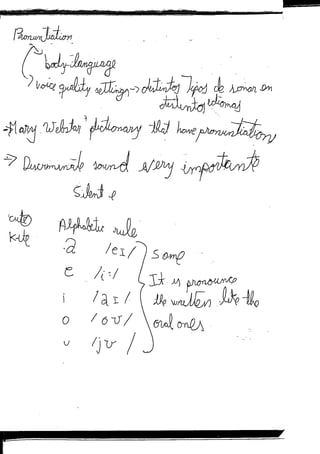 Pronuntiation
body-language
voice quality settings → distintos Tipos de sonar en
distintos idiomas
→ Mary Webstar dictionary that have pronuntiation
→ Discriminate sound very importante
Silent e
cute
Kite
Alphabetic rule
a /eɪ/ Some
e /i:/ It is pronounce
i /aɪ/ the written like the
o /oʊ/ oral ones
u /jʊ/